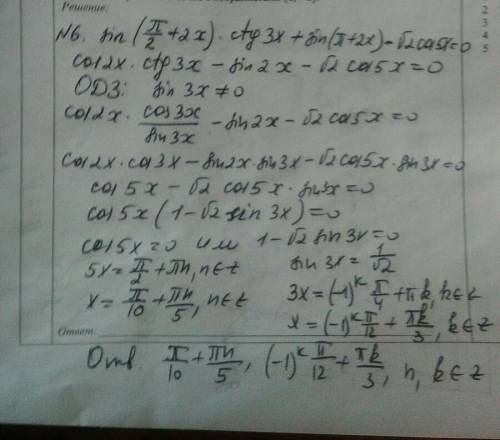 Решение:
2
3
4
5
N6. sin(π/2+2x)·ctg3x+sin(π+2x)-√2cos5x=0
cos2x·ctg3x-sin2x-√2cos5x=0
ОДЗ: sin3x≠0
cos2x·cos3x/sin3x-sin2x-√2cos5x=0
cos2x·cos3x-sin2x·sin3x-√2cos5x·sin3x=0
cos5x-√2cos5x·sin3x=0
cos5x(1-√2sin3x)=0
cos5x=0 или 1-√2sin3x=0
5x=π/2+πn,n∈z sin3x=1/√2
x=π/10+πn/5,n∈z 3x=(-1)^k π/4+πk,k∈z
x=(-1)^k π/12+πk/3,k∈z
Ответ:
Отв. π/10+πn/5, (-1)^k π/12+πk/3, n, k∈z